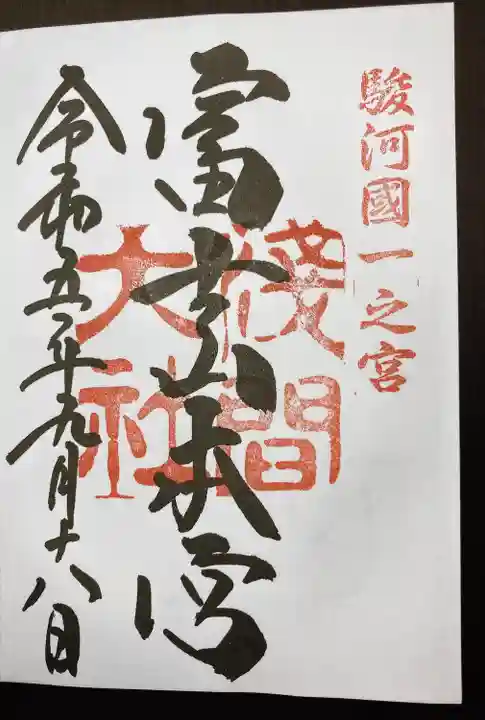 駿河國一之宮
富士山本宮
浅間
大社
令和五年九月十八日